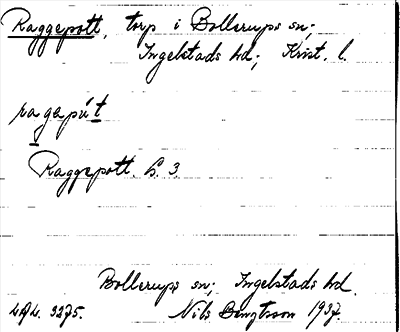 Raggepott, torp i Bollerups sn;
Ingelstads hd; Krist. l.
ragepút
Raggepott. h. 3.
Bollerups sn; Ingelstads hd.
LAL. 3275. Nils Bengtsson 1937.